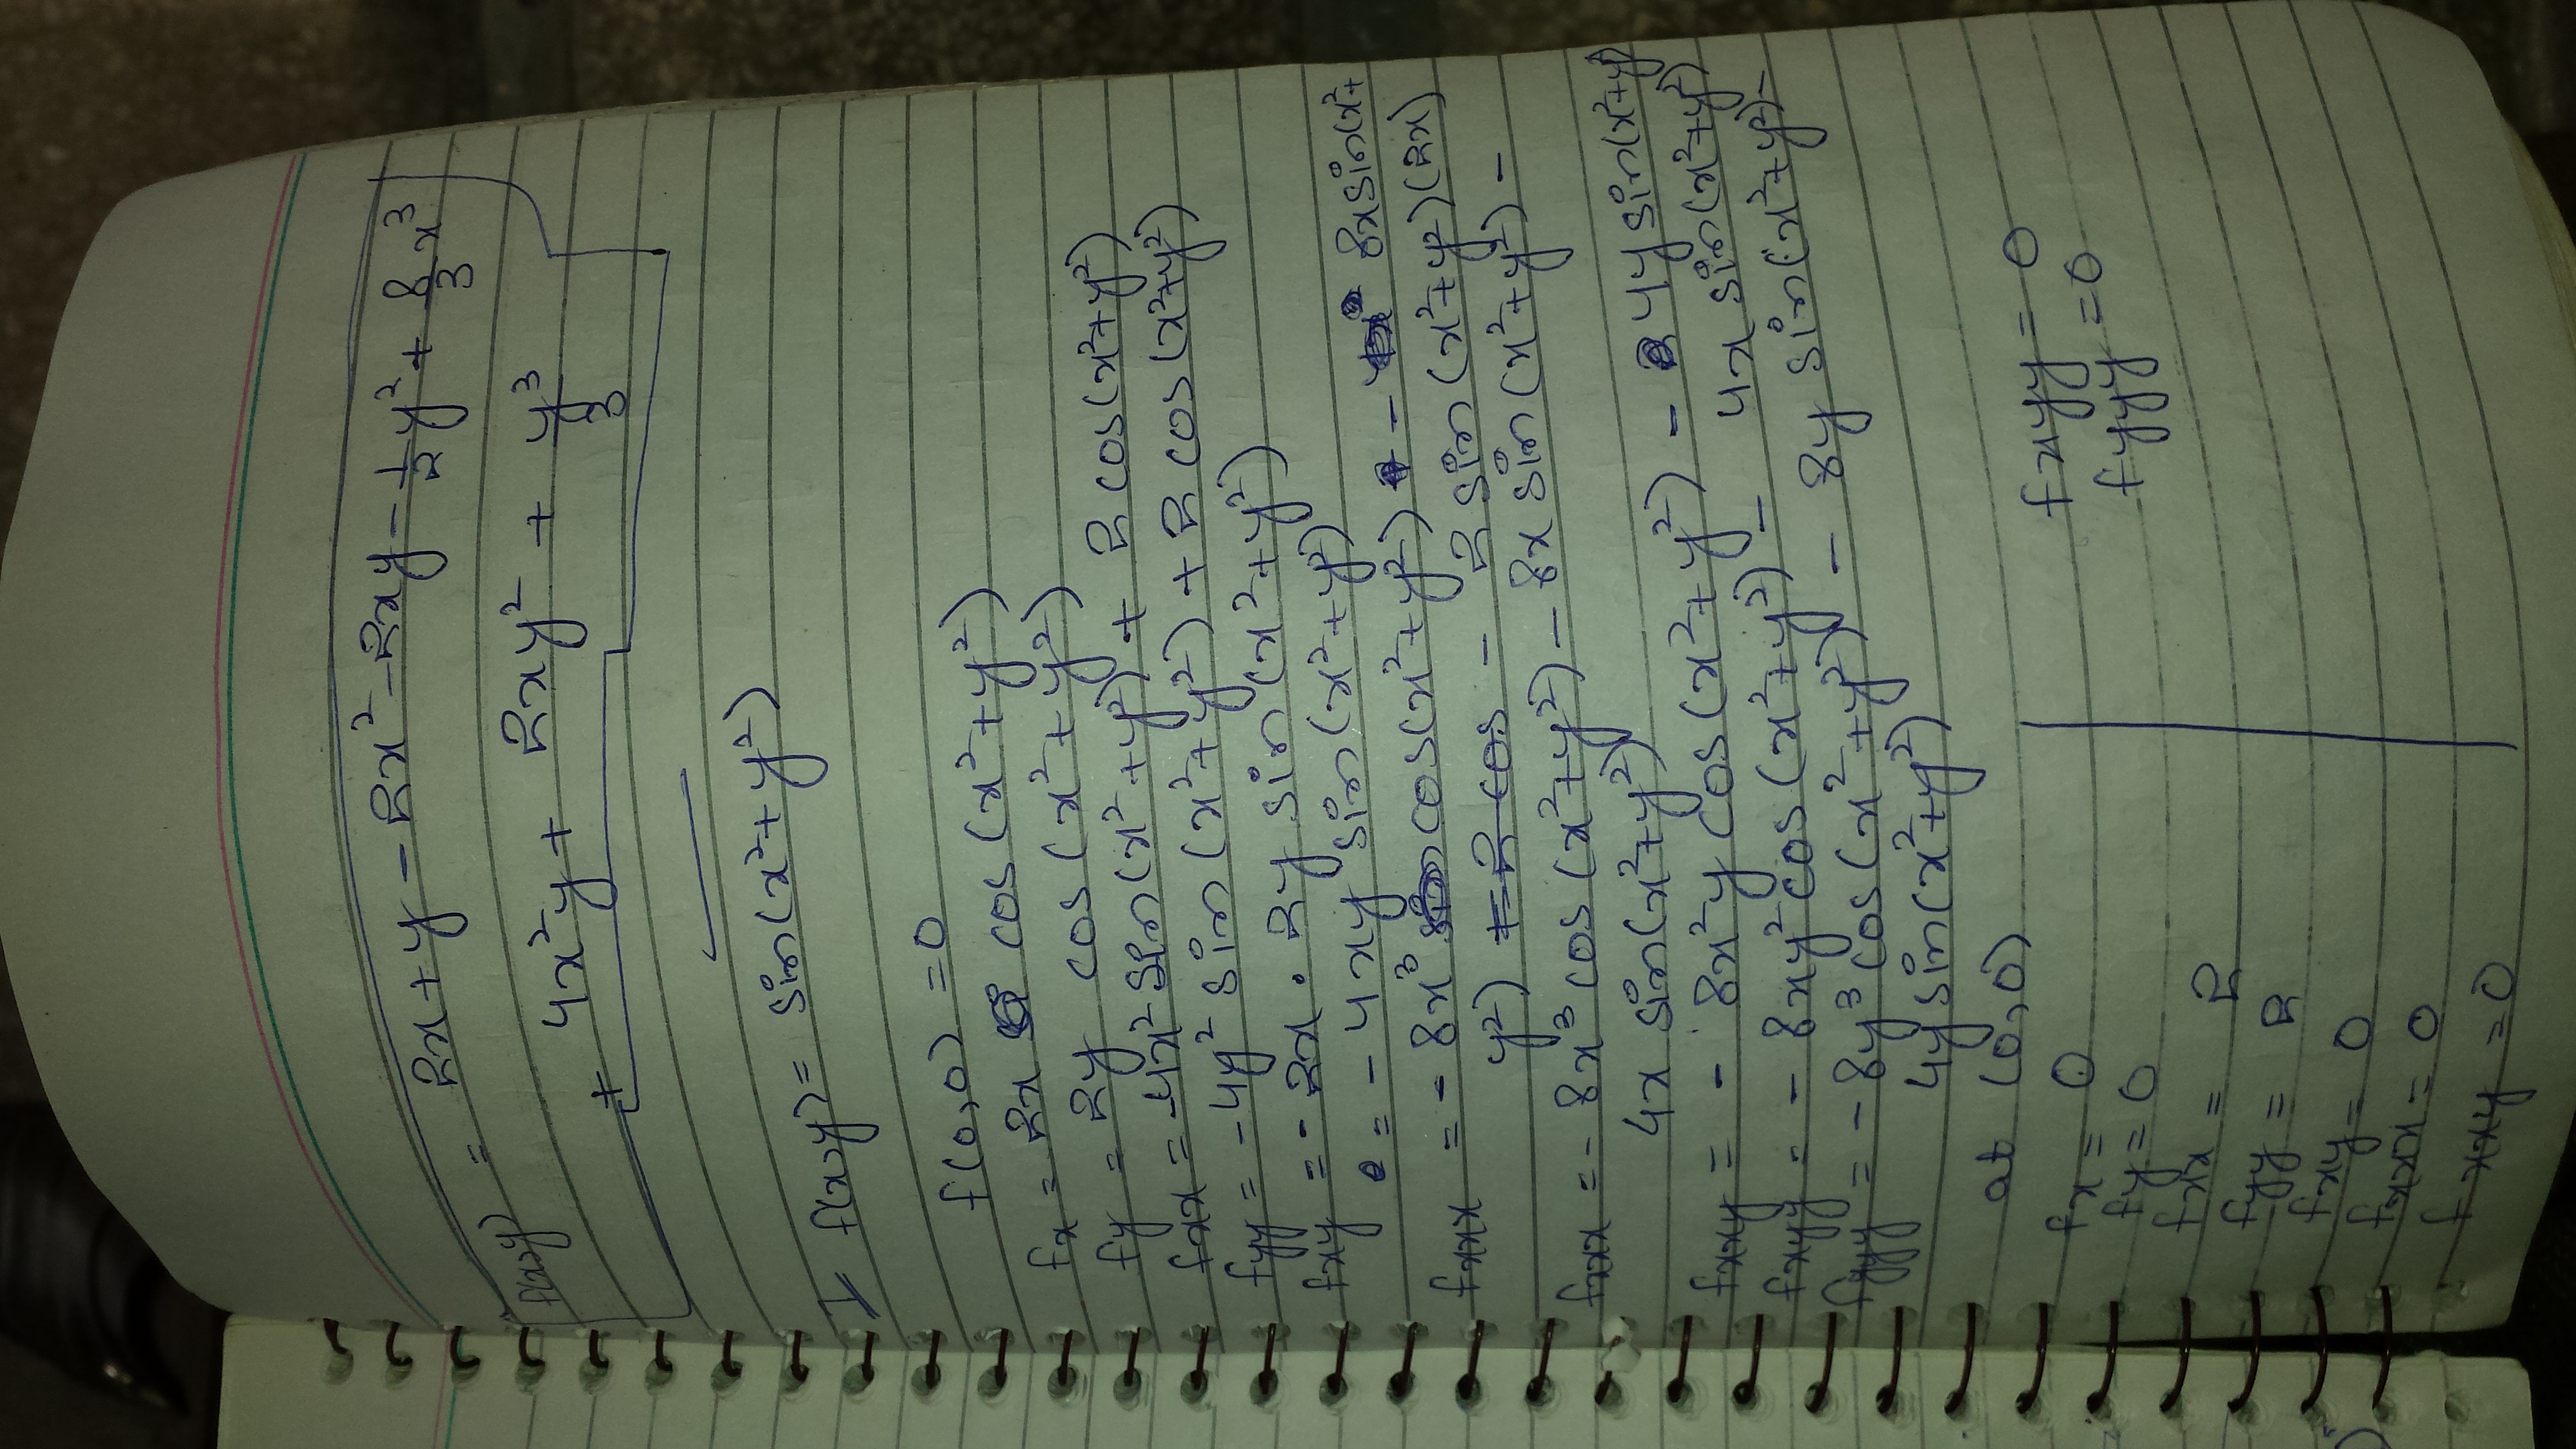 f(x,y) = 2x + y - 2x² - 2xy - 1/2 y² + 8/3 x³
+ 4x²y + 2xy² + y³/3
I f(x,y) = sin(x²+y²)
f(0,0) = 0
fx = 2x cos(x²+y²)
fy = 2y cos(x²+y²)
fxx = -4x² sin(x²+y²) + 2 cos(x²+y²)
fyy = -4y² sin(x²+y²) + 2 cos(x²+y²)
fxy = - 2x · 2y sin(x²+y²)
= - 4xy sin(x²+y²)
fxxx = - 8x³ cos(x²+y²) - 8x sin(x²+
y²) - 2 sin(x²+y²)(2x)
fxxx = - 8x³ cos(x²+y²) - 8x sin(x²+y²) -
4x sin(x²+y²)
fxxy = - 8x²y cos(x²+y²) - 4y sin(x²+y²)
fxyy = - 8xy² cos(x²+y²) - 4x sin(x²+y²)
fyyy = - 8y³ cos(x²+y²) - 8y sin(x²+y²) -
4y sin(x²+y²)
at (0,0)
fx = 0
fy = 0
fxx = 2
fyy = 2
fxy = 0
fxxx = 0
fxxy = 0
fxyy = 0
fyyy = 0